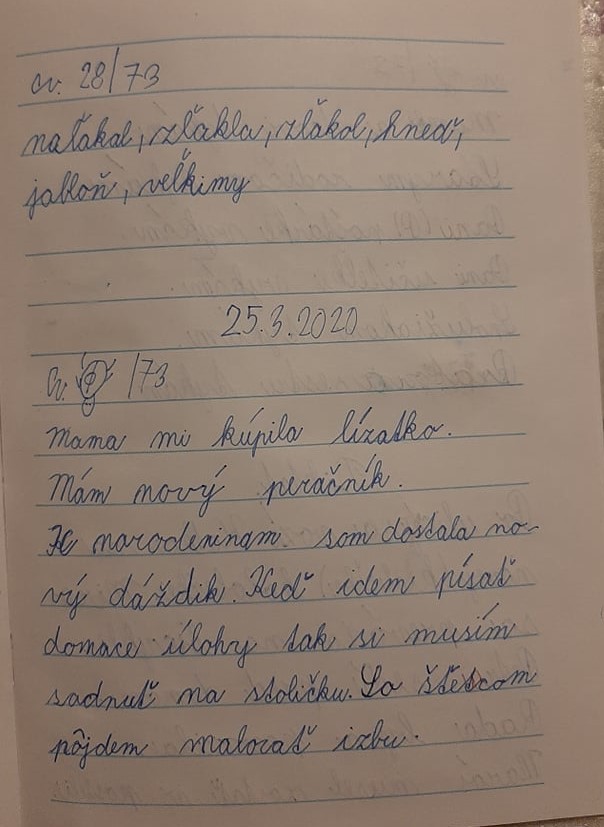 cv. 28/73
naľakal, zľakla, zľakol, hneď,
jabloň, veľkimy
25.3.2020
cv. /73
Mama mi kúpila lízatko.
Mám nový peračník.
K narodeninam som dostala no-
vý dáždik. Keď idem písať
domace úlohy tak si musím
sadnuť na stoličku. So štetcom
pôjdem malovať izbu.